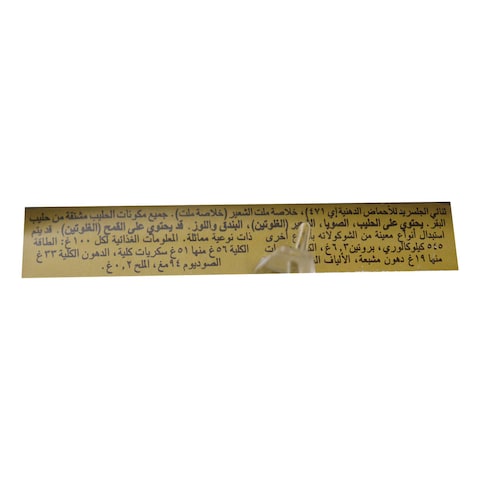 ثنائي الجلسريد للأحماض الدهنية(إي ٤٧١)، خلاصة ملت الشعير (خلاصة ملت). جميع مكونات الحليب مشتقة من حليب
البقر. يحتوي على الحليب، الصويا، (القلوتين)، البندق واللوز. قد يحتوي على القمح (القلوتين). قد يتم
استبدال أنواع معينة من الشوكولاته أخرى ذات نوعية مماثلة. المعلومات الغذائية لكل ١٠٠غ: الطاقة
٥٤٥ كيلوكالوري، بروتين٦,٣غ، الكلية ٥٦غ منها ٥١غ سكريات كلية، الدهون الكلية ٣٣غ
منها ١٩غ دهون مشبعة، الألياف الصوديوم ٩٤مغ، الملح ٠,٢غ.